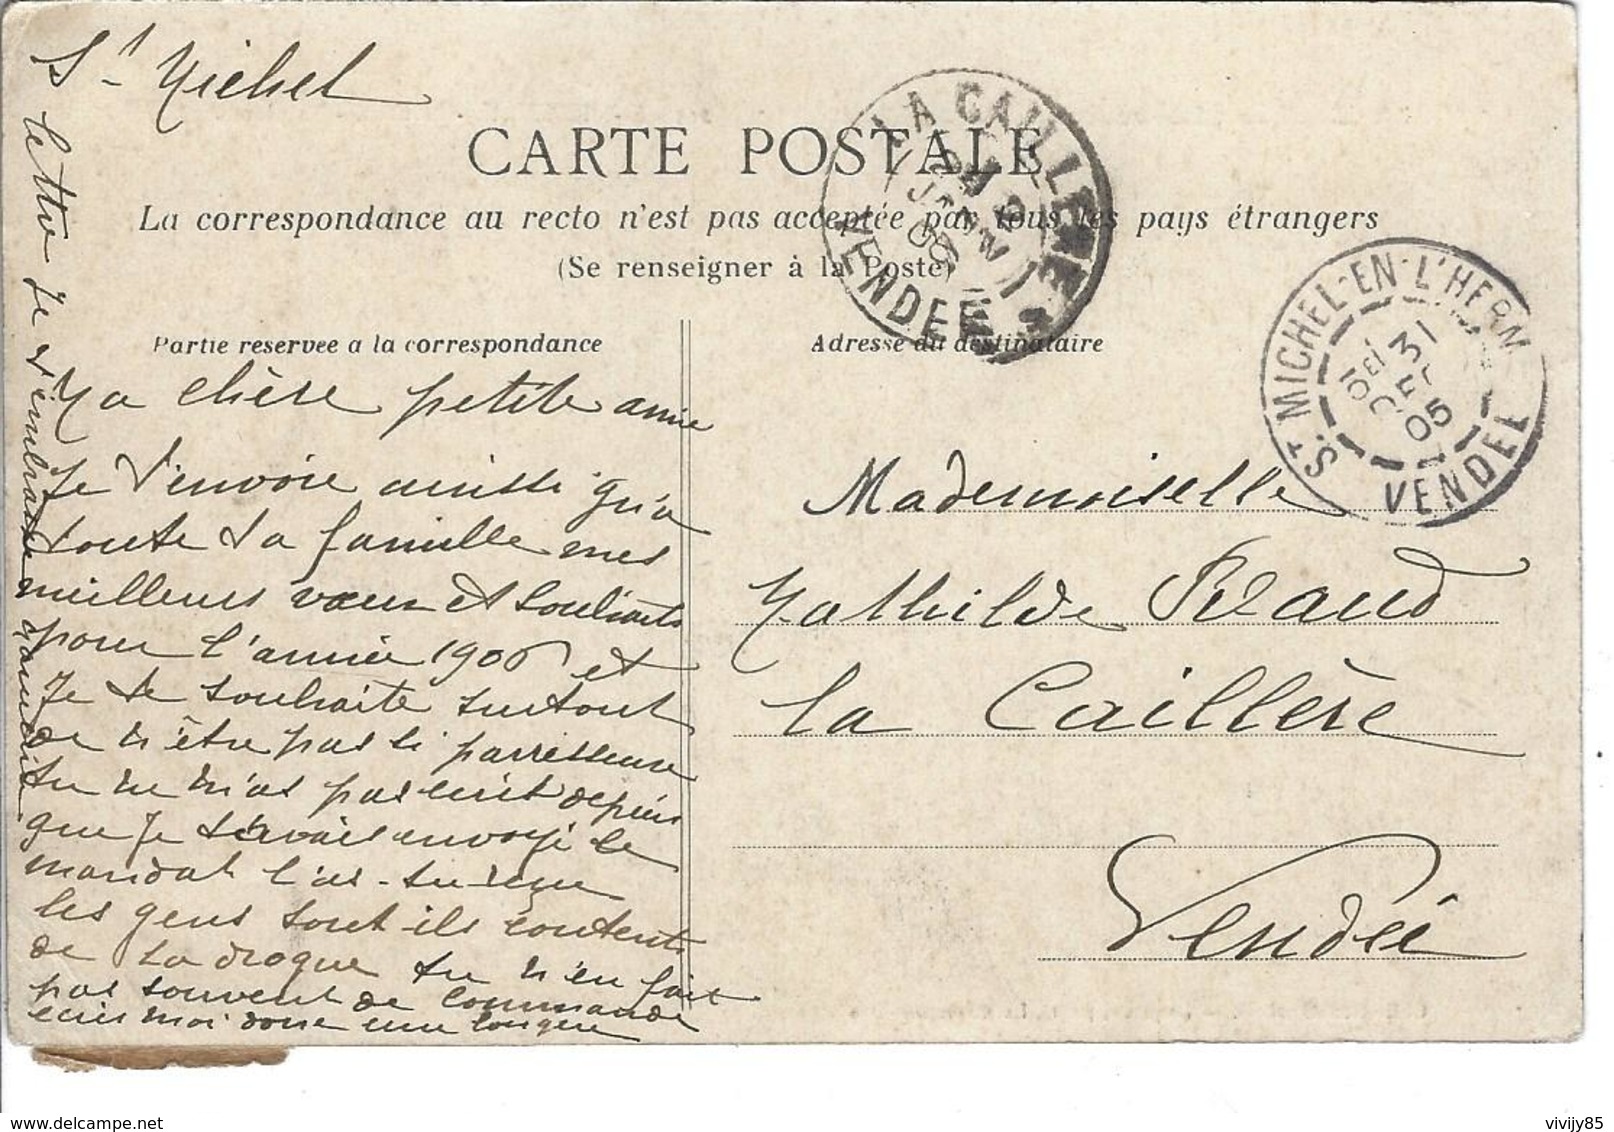 St Michel
CARTE POSTALE
La correspondance au recto n'est pas acceptée par tous les pays étrangers
(Se renseigner à la Poste)
Partie reservee a la correspondance
Adresse du destinataire
LA CAILLERE
VENDEE
ST MICHEL-EN-L'HERM
31
05
VENDEE
Ma chère petite amie
Je t'envoie ainsi qu'a
toute ta famille mes
meilleurs vœux et souhaits
pour l'année 1906 et
Je te souhaite surtout
de n'être pas si parresseuse
tu ne m'as pas ecrit depuis
que Je t'avais envoyé le
mandat l'as-tu reçu
les gens sont-ils contents
de ta drogue tu n'en fait
pas souvent de commande
ecris moi donc une longue
lettre Je t'embrasse
Mademoiselle
Mathilde
la Caillère
Vendée
vivijy85